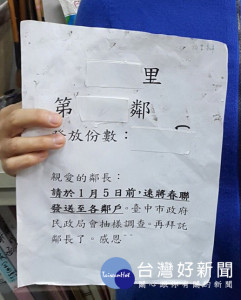 里
第 鄰
發放份數：
親愛的鄰長：
請於1月5日前，速將春聯
發送至各鄰戶。臺中市政府
民政局會抽樣調查。再拜託
鄰長了。感恩
台灣好新聞